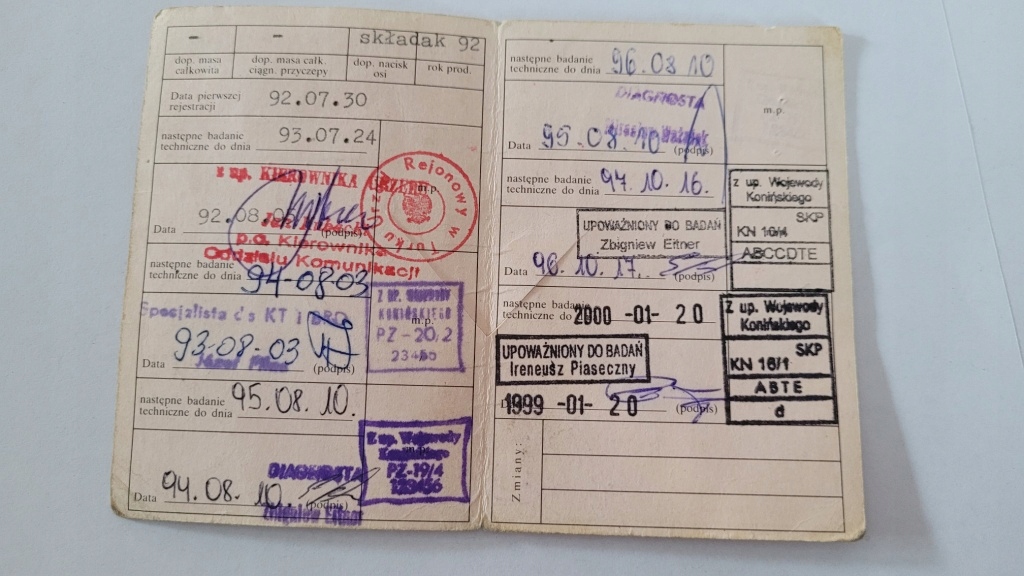 - - składak 92
dop. masa całkowita
dop. masa całk. ciągn. przyczepy
dop. nacisk osi
rok prod.
Data pierwszej rejestracji 92.07.30
następne badanie techniczne do dnia 93.07.24
z up. KIEROWNIKA URZĘDU
m.p.
Rejonowy w Turku
Urząd
Data 92.08.
(podpis)
p.o. Kierownika
Oddziału Komunikacji
następne badanie techniczne do dnia 94-08-03
Specjalista d/s KT i BRD
Z UP. WOJEWODY
KONIŃSKIEGO
m.p.
PZ-20/2
Data 93-08-03
Józef
(podpis)
następne badanie techniczne do dnia 95.08.10.
Z up. Wojewody
Konińskiego
PZ-19/4
123456
DIAGNOSTA
Data 94.08.10.
(podpis)
Zbigniew Eitner
następne badanie techniczne do dnia 96.08.10
m.p.
DIAGNOSTA
Data 95.08.10
(podpis)
następne badanie techniczne do dnia 97.10.16.
z up. Wojewody
Konińskiego
SKP
KN 16/4
ABCCDTE
UPOWAŻNIONY DO BADAŃ
Zbigniew Eitner
Data 96.10.17.
następne badanie techniczne do dnia 2000 -01- 20
z up. Wojewody
Konińskiego
SKP
KN 16/1
ABTE
d
UPOWAŻNIONY DO BADAŃ
Ireneusz Piaseczny
1999 -01- 20
(podpis)
Zmiany: